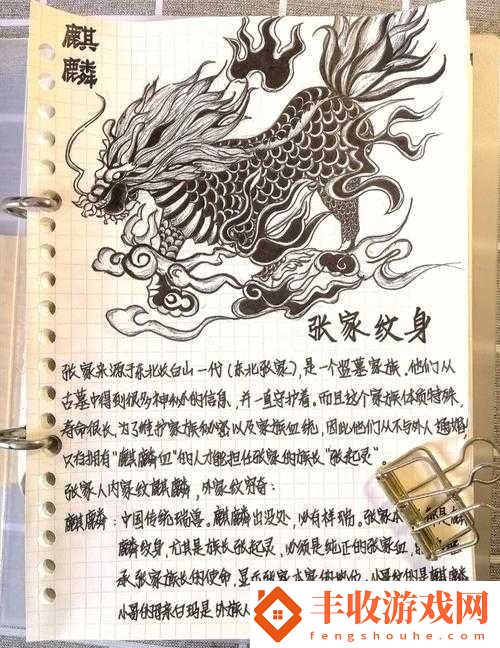 麒
麟
张家纹身
张家来源于东北长白山一代(东北张家),是一个盗墓家族,他们从
古墓中得到很多神秘的信息,并一直守护着。而且这个家族体质特殊,
寿命很长,为了维护家族秘密以及家族血统,因此他们从不与外人通婚
只有拥有“麒麟血”的人才能担任张家的族长“张起灵”。
张家人内家纹麒麟,外家纹穷奇:
麒麟:中国传统瑞兽。麒麟出没处,必有祥瑞。张家本
麟纹身,尤其是族长张起灵,必须是纯正的张家血,
承张家族长的使命,显示张家本家的地位,小哥纹的是麒麟
小哥的母亲白玛是外族人
丰收游戏网
fengshouhe.com